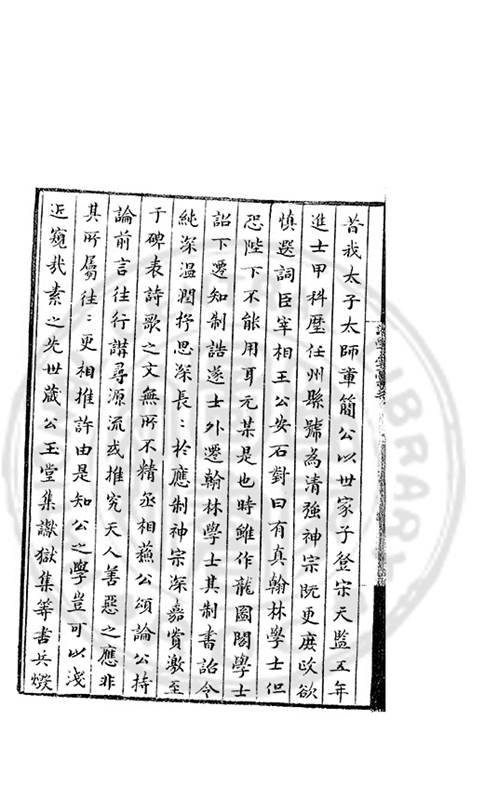 昔我太子太師章簡公以世家子登宋天監五年
進士甲科歷任州縣號為清強神宗既更庶政欲
慎選詞臣宰相王公安石對曰有真翰林學士但
恐陛下不能用耳元某是也時雖作龍圖閣學士
詔下遷知制誥遂士外遷翰林學士其制書詔令
純深溫潤抒思深長：於應制神宗深嘉賞激至
于碑表詩歌之文無所不精丞相蘇公頌論公持
論前言往行講尋源流或推究天人善惡之應非
其所屬往：更相推許由是知公之學豈可以淺
近窺哉素之先世蔵公玉堂集讞獄集等書兵燬